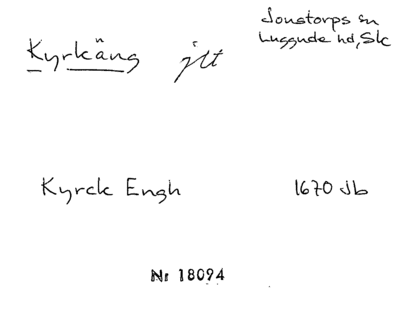 Kyrkäng jtt
Jonstorps sn
Luggude hd, Sk
Kyrck Engh 1670 Jb
Nr 18094